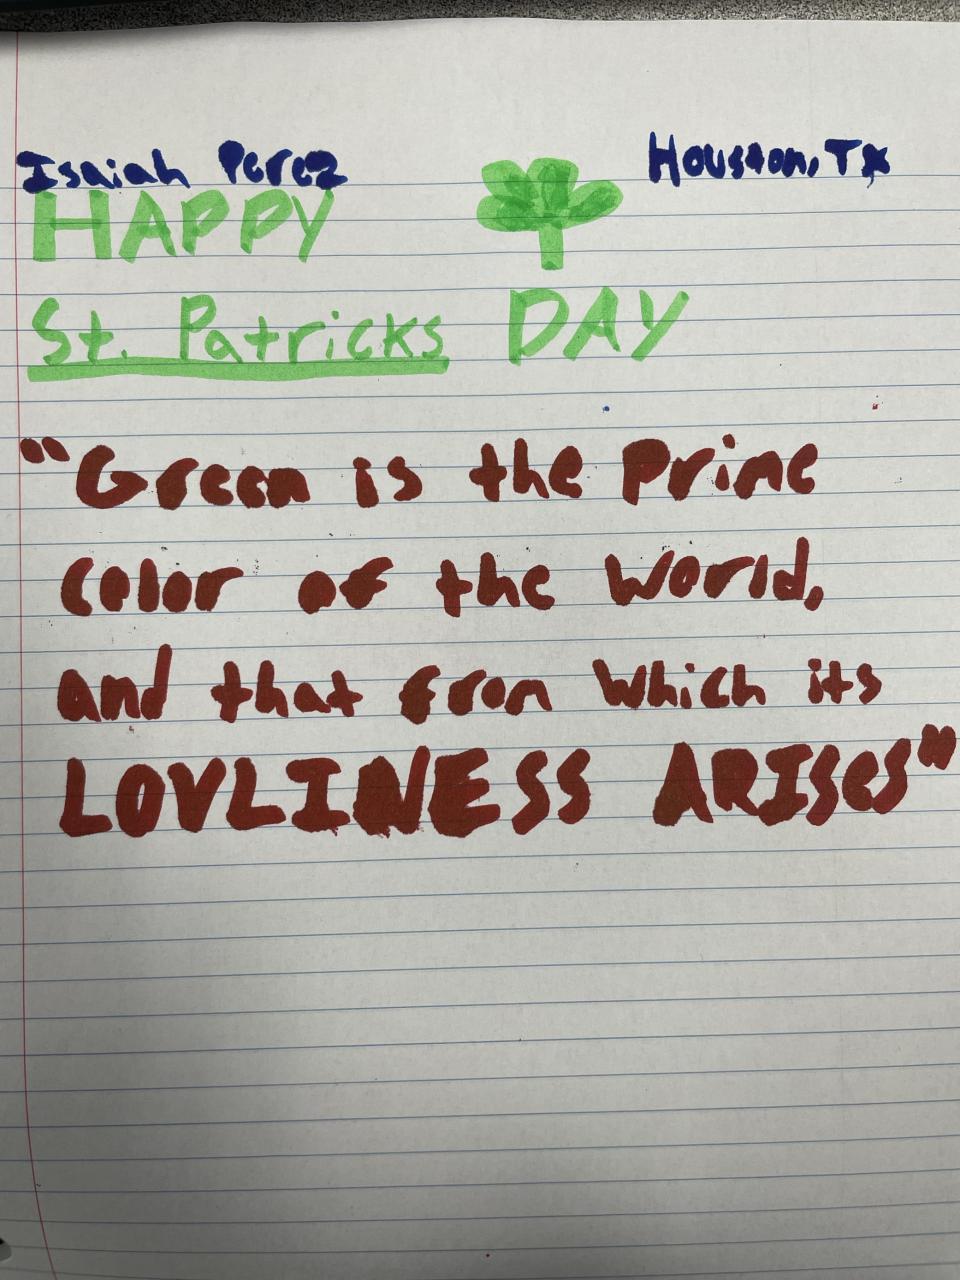 Isaiah Perez Houston, Tx
HAPPY
St. Patricks DAY
"Green is the Prime
color of the world,
and that fron which its
LOVLINESS ARISES"